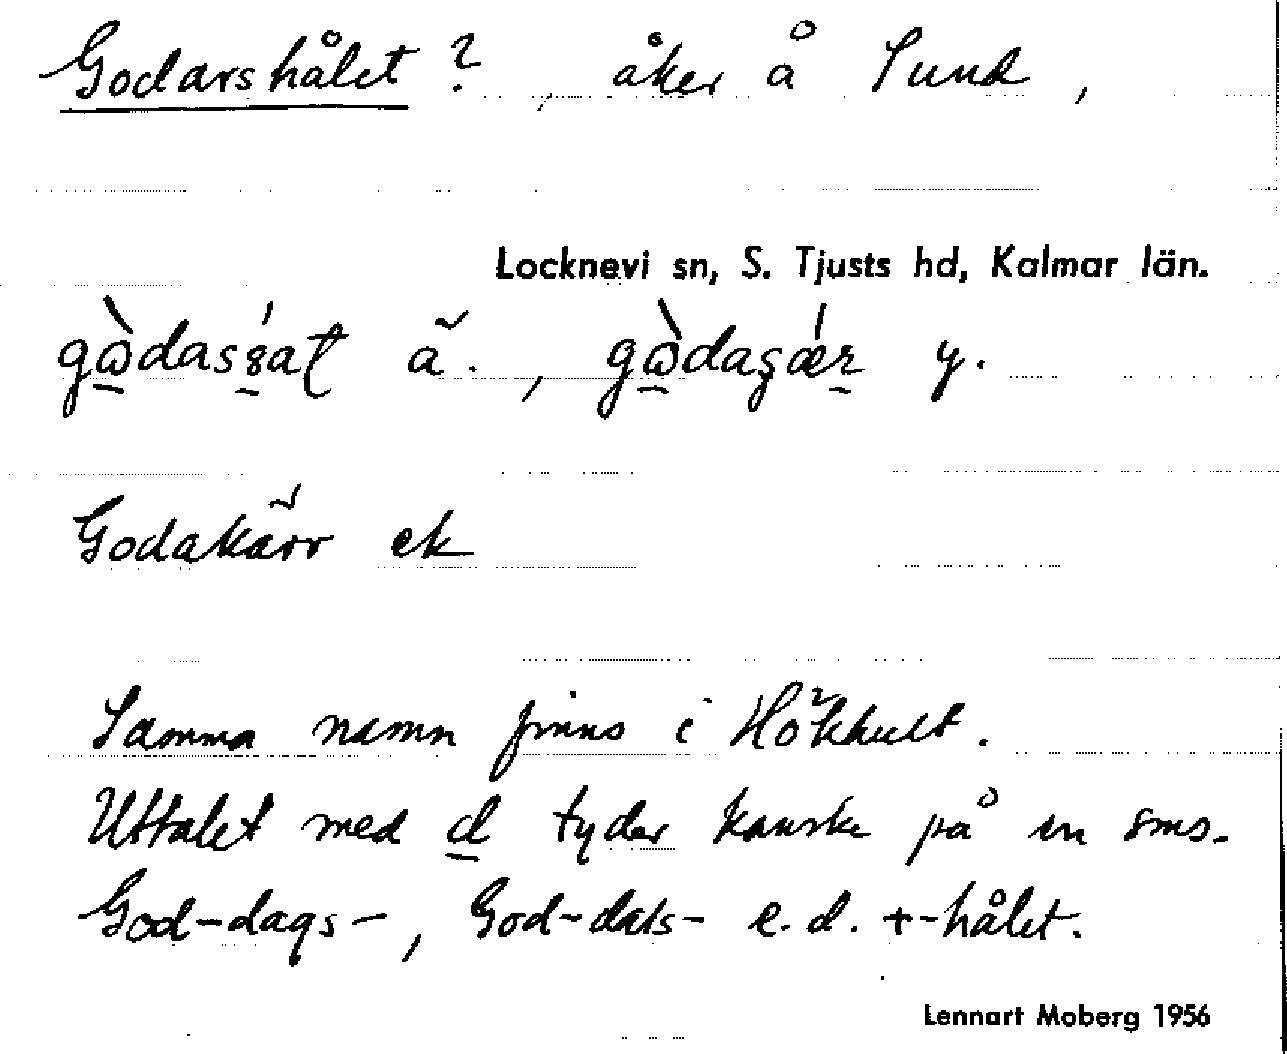 Godarshålet ?, åker å Sund,
Locknevi sn, S. Tjusts hd, Kalmar län.
ä., y.
Godakärr ek
Samma namn finns i Hökhult.
Uttalet med d tyder kanske på en sms.
God-dags-, God-dals- e.d. +-hålet.
Lennart Moberg 1956